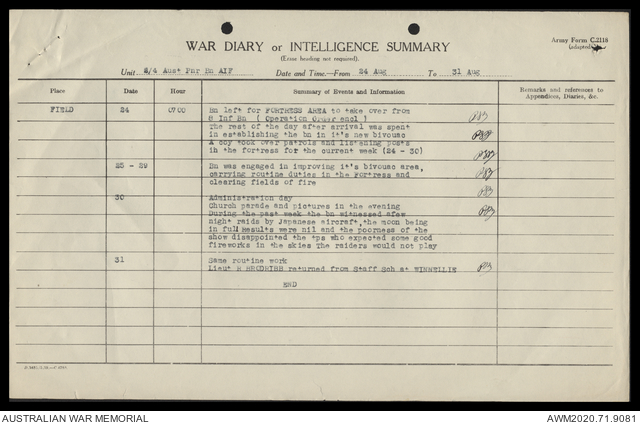 Army Form C.2118
(adapted)
WAR DIARY or INTELLIGENCE SUMMARY
(Erase heading not required).
Unit 2/4 Aust Pnr Bn AIF Date and Time.—From 24 Aug To 31 Aug
Place Date Hour Summary of Events and Information Remarks and references to Appendices, Diaries, &c.
FIELD 24 0700 Bn left for FORTRESS AREA to take over from
8 Inf Bn ( Operation Order encl )
The rest of the day after arrival was spent
in establishing the bn in it's new bivouac
A coy took over patrols and listening posts
in the fortress for the current week (24 - 30)
25 - 29 Bn was engaged in improving it's bivouac area,
carrying routine duties in the Fortress and
clearing fields of fire
30 Administration day
Church parade and pictures in the evening
During the past week the bn witnessed afew
night raids by Japanese aircraft,the moon being
in full Results were nil and the poorness of the
show disappointed the tps who expected some good
fireworks in the skies The raiders would not play
31 Same routine work
Lieut R BRODRIBB returned from Staff Sch at WINNELLIE
END
AUSTRALIAN WAR MEMORIAL
AWM2020.71.9081